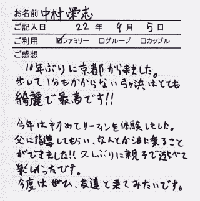 お名前 中村 栄志
ご記入日 22年 9月 5日
ご利用 ☑ファミリー □グループ □カップル
ご感想
10年ぶりに京都が来ました。
歩いて1分もかからない
綺麗で最高です!!
今年は初めてリーフィンを体験しました。
父に指導してもらい、なんとか波に乗ることが
できました!! 久しぶりに親子で遊べて
楽しかったです。
今度はぜひ、友達と来てみたいです。